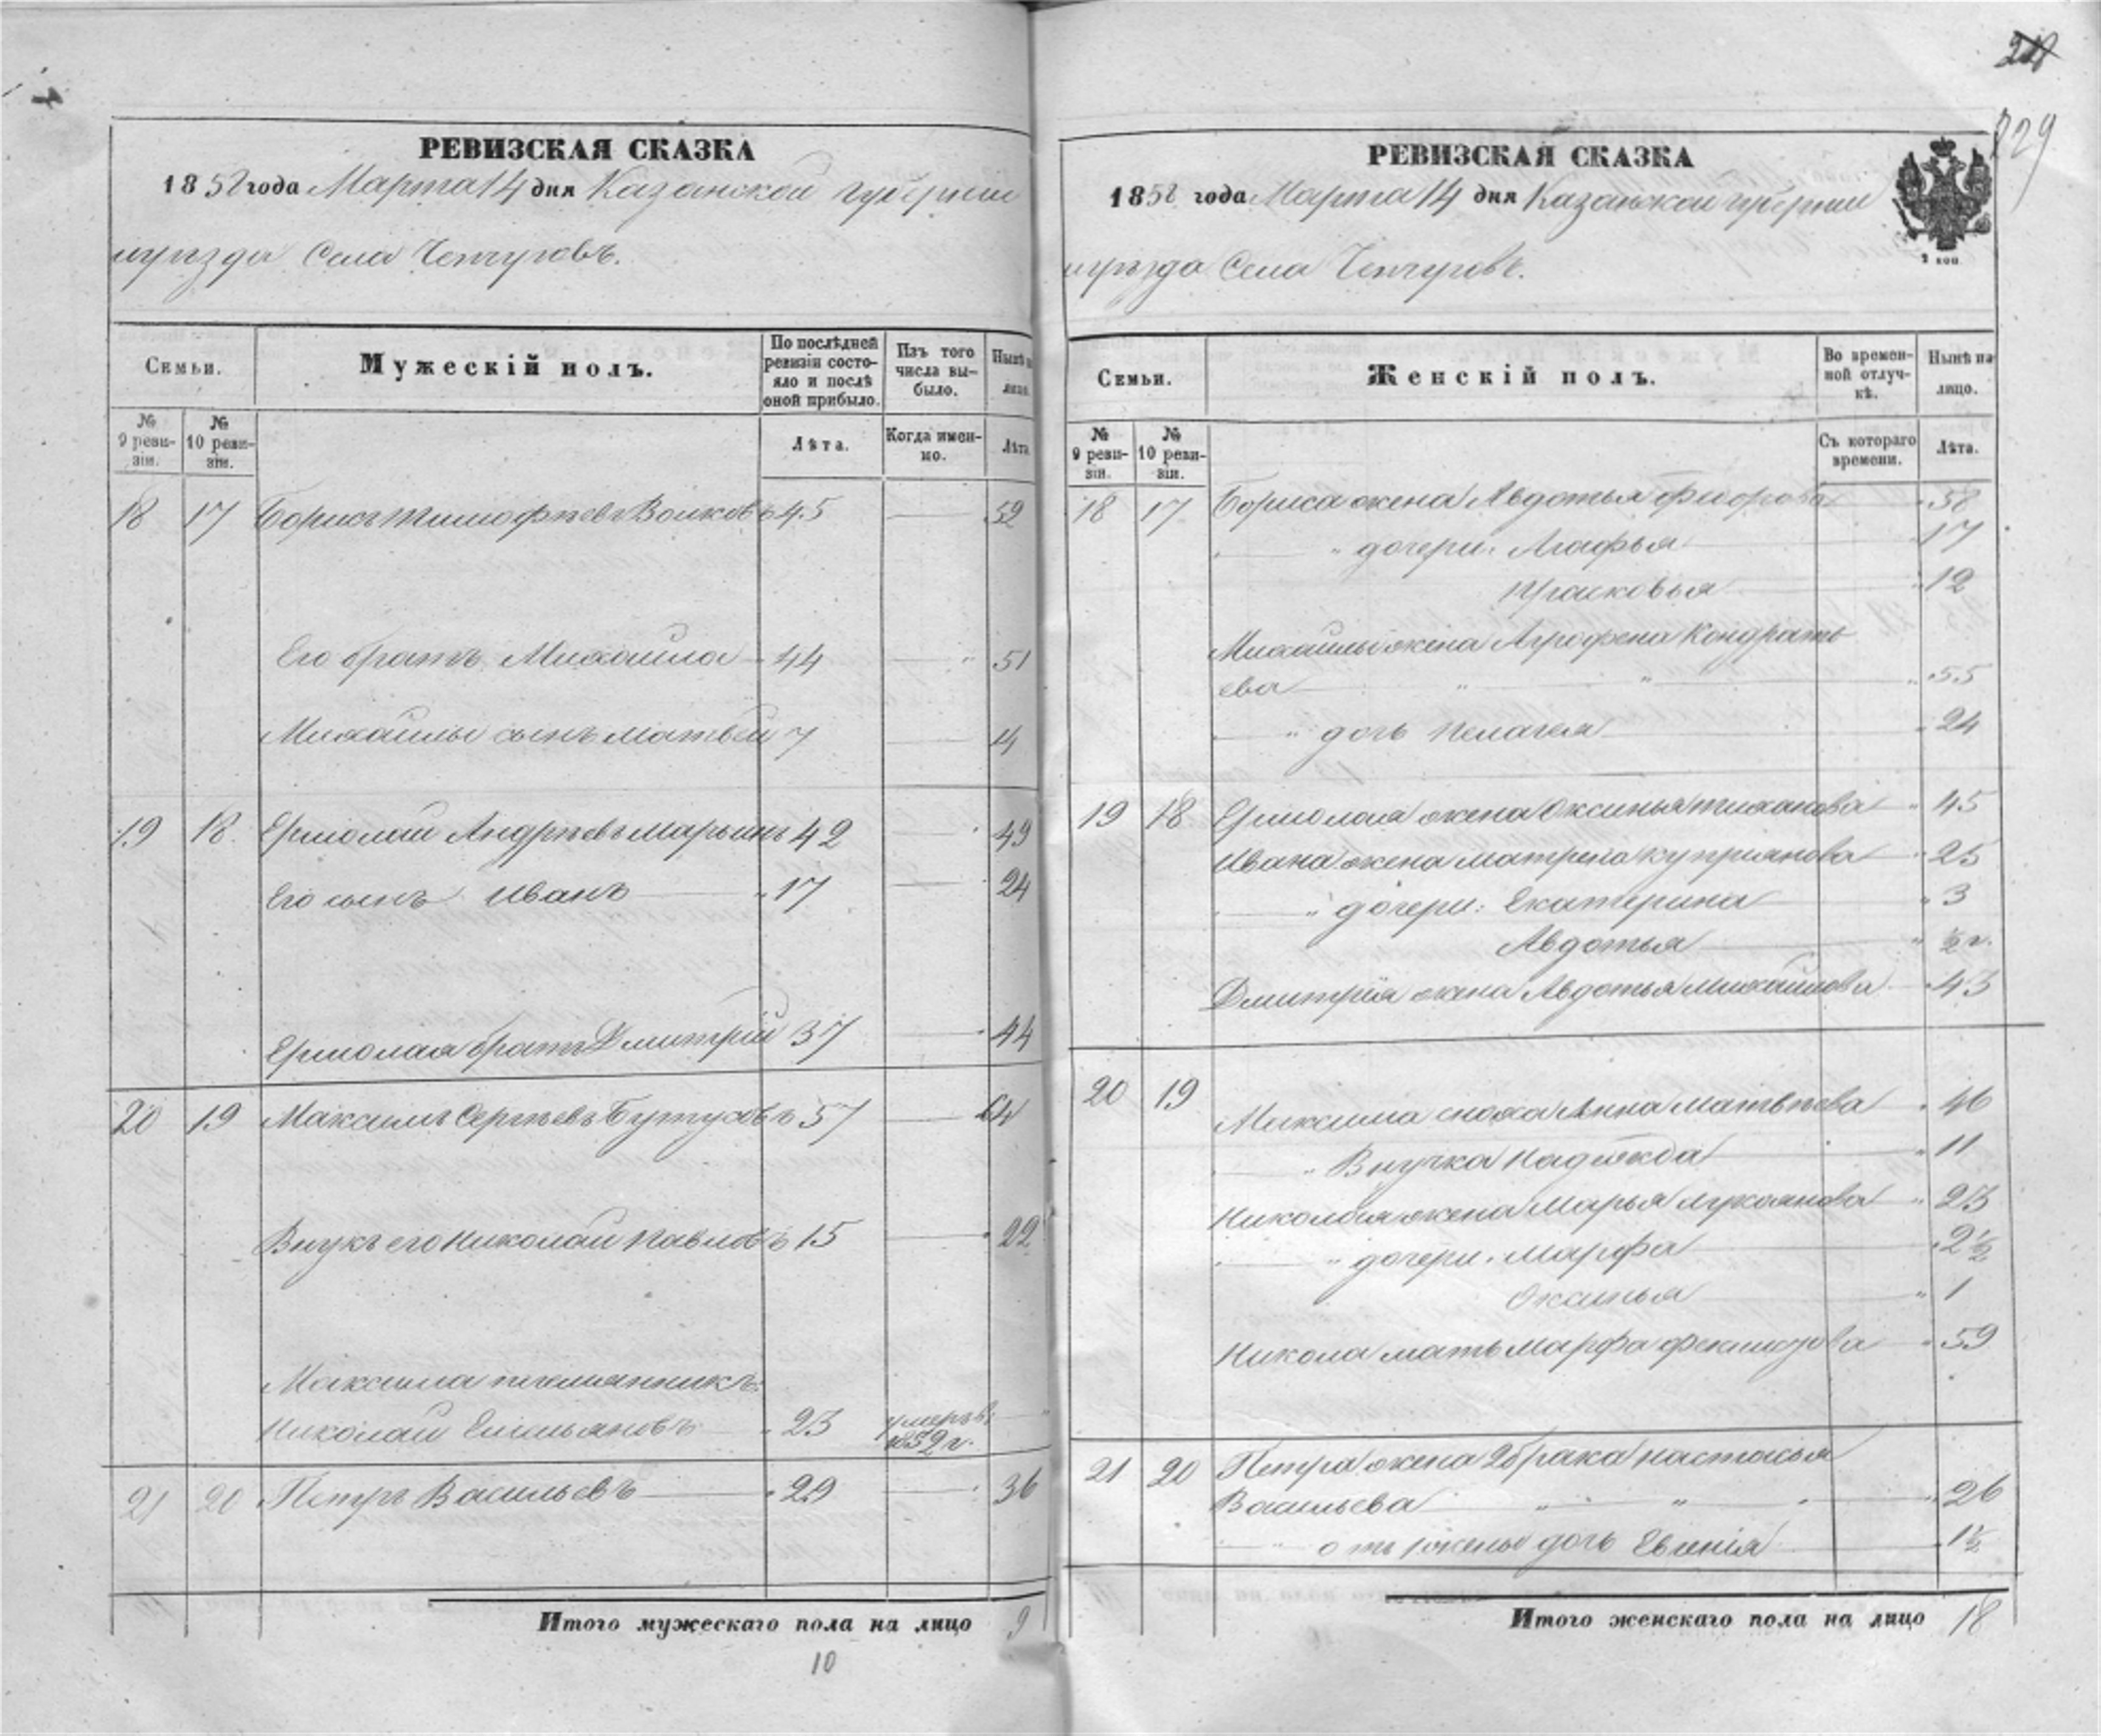 218
229
РЕВИЗСКАЯ СКАЗКА
1858 года Марта 14 дня Казанской губернии
и уѣзда Села Чепчуговъ.
Семьи.
Мужескій полъ.
По послѣдней ревизіи состояло и послѣ оной прибыло.
Изъ того числа выбыло.
Нынѣ на лицо.
№ 9 ревизіи.
№ 10 ревизіи.
Лѣта.
Когда именно.
Лѣта.
18 17 Борисъ Тимофѣевъ Волковъ 45 — 52
Его братъ Михайла 44 — 51
Михайлы сынъ Матвей 7 — 14
19 18 Ермолай Андрѣевъ Марьинъ 42 — 49
Его сынъ Иванъ 17 — 24
Ермолая братъ Дмитрій 37 — 44
20 19 Максимъ Сергѣевъ Бутусовъ 57 — 64
Внукъ его Николай Павловъ 15 — 22
Максима племянникъ:
Николай Емельяновъ 23 умеръ в 1852 г. —
21 20 Петръ Васильевъ 29 — 36
Итого мужескаго пола на лицо 9
10
РЕВИЗСКАЯ СКАЗКА
1858 года Марта 14 дня Казанской губернии
и уѣзда Села Чепчуговъ.
2 коп
Семьи.
Женскій полъ.
Во временной отлучкѣ.
Нынѣ на лицо.
№ 9 ревизіи.
№ 10 ревизіи.
Съ котораго времени.
Лѣта.
18 17 Бориса жена Авдотья Федорова 58
" дочери: Агафья 17
Прасковья 12
Михайлы жена Аграфена Кондрать
ева " " 55
" дочь Пелагея 24
19 18 Ермолая жена Оксинья Тиханова 45
Ивана жена Матрена Куприянова 25
" дочери: Екатерина 3
Авдотья ½ г.
Дмитрія жена Авдотья Михайлова 43
20 19 Максима сноха Анна Матвѣева 46
" Внучка Надежда 11
Николая жена Марья Лукоянова 23
" дочери: Марфа 2½
Оксинья 1
Никола мать Марфа 59
21 20 Петра жена 2 брака Настасья
Васильева " " 26
" отъ 1 жены дочь Евгенія 1½
Итого женскаго пола на лицо 18